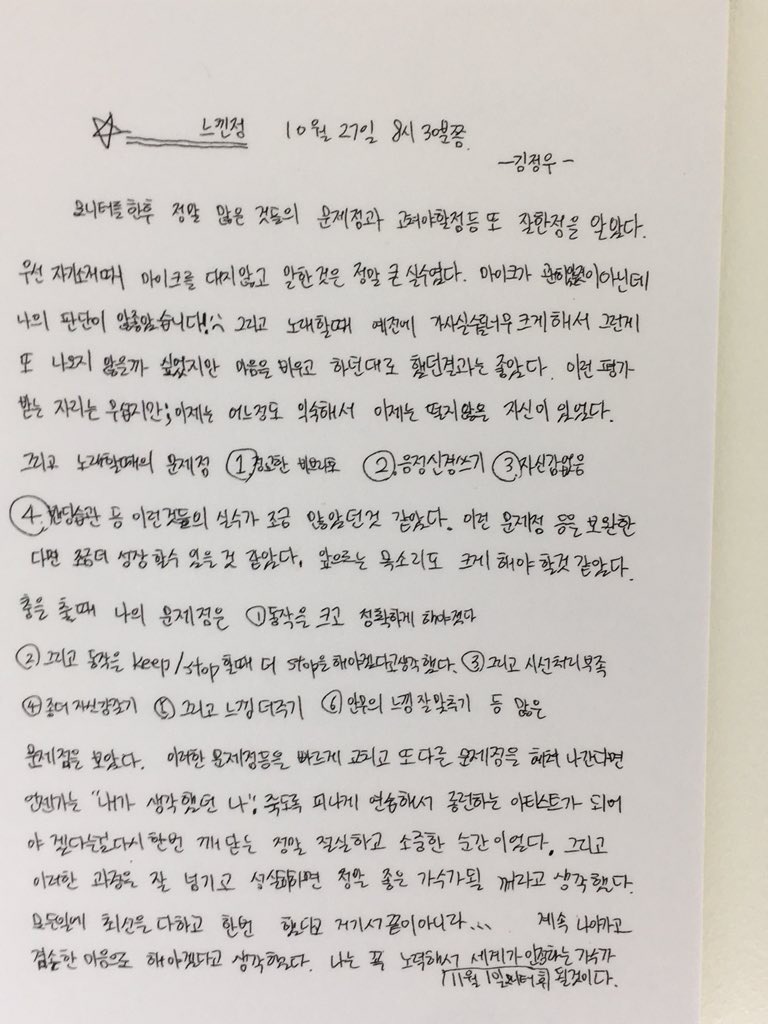 느낀점 10월 27일 8시 30분쯤.
-김정우-
모니터를한후 정말 많은 것들의 문제점과 고쳐야할점등 또 잘한점을 알았다.
우선 자기소개때 마이크를 대지않고 말한것은 정말 큰 실수였다. 마이크가 이아닌데
나의 판단이 안좋았습니다! 그리고 노래할때 예전에 가사실수를너무 크게해서 그런게
또 나오지 않을까 싶었지만 마음을 비우고 하던대로 했던결과는 좋았다. 이런 평가
받는 자리는 무섭지만; 이제는 어느정도 익숙해서 이제는 떨지않을 자신이 있었다.
그리고 노래할때의 문제점 ① ② 음정신경쓰기 ③ 자신감없음
④ 습관 등 이런것들의 실수가 조금 많았던것 같았다. 이런 문제점 등을 보완한
다면 조금더 성장할수 있을 것 같았다. 앞으로는 목소리도 크게 해야 할것 같았다.
춤을 출때 나의 문제점은 ① 동작을 크고 정확하게 해야겠다
② 그리고 동작을 keep/stop 할때 더 stop을해야겠다고생각했다. ③ 그리고 시선처리부족
④ 좀더 자신감갖기 ⑤ 그리고 느낌더주기 ⑥ 안무의 느낌잘맞추기 등 많은
문제점을 보았다. 이러한 문제점등을 빠르게 고치고 또다른 문제점을 헤쳐 나간다면
언젠가는 "내가 생각했던 나", 죽도록 피나게 연습해서 공연하는 아티스트가 되어
야 겠다는걸다시 한번 깨 닫는 정말 절실하고 소중한 순간이었다. 그리고
이러한 과정을 잘 넘기고 성실히하면 정말 좋은 가수가될 꺼라고 생각했다.
모든일에 최선을 다하고 한번 했다고 거기서 끝이아니라... 계속 나아가고
겸손한 마음으로 해야겠다고 생각했다. 나는 꼭 노력해서 세계가 인정하는 가수가
11월 1일모니터 휘 될것이다.